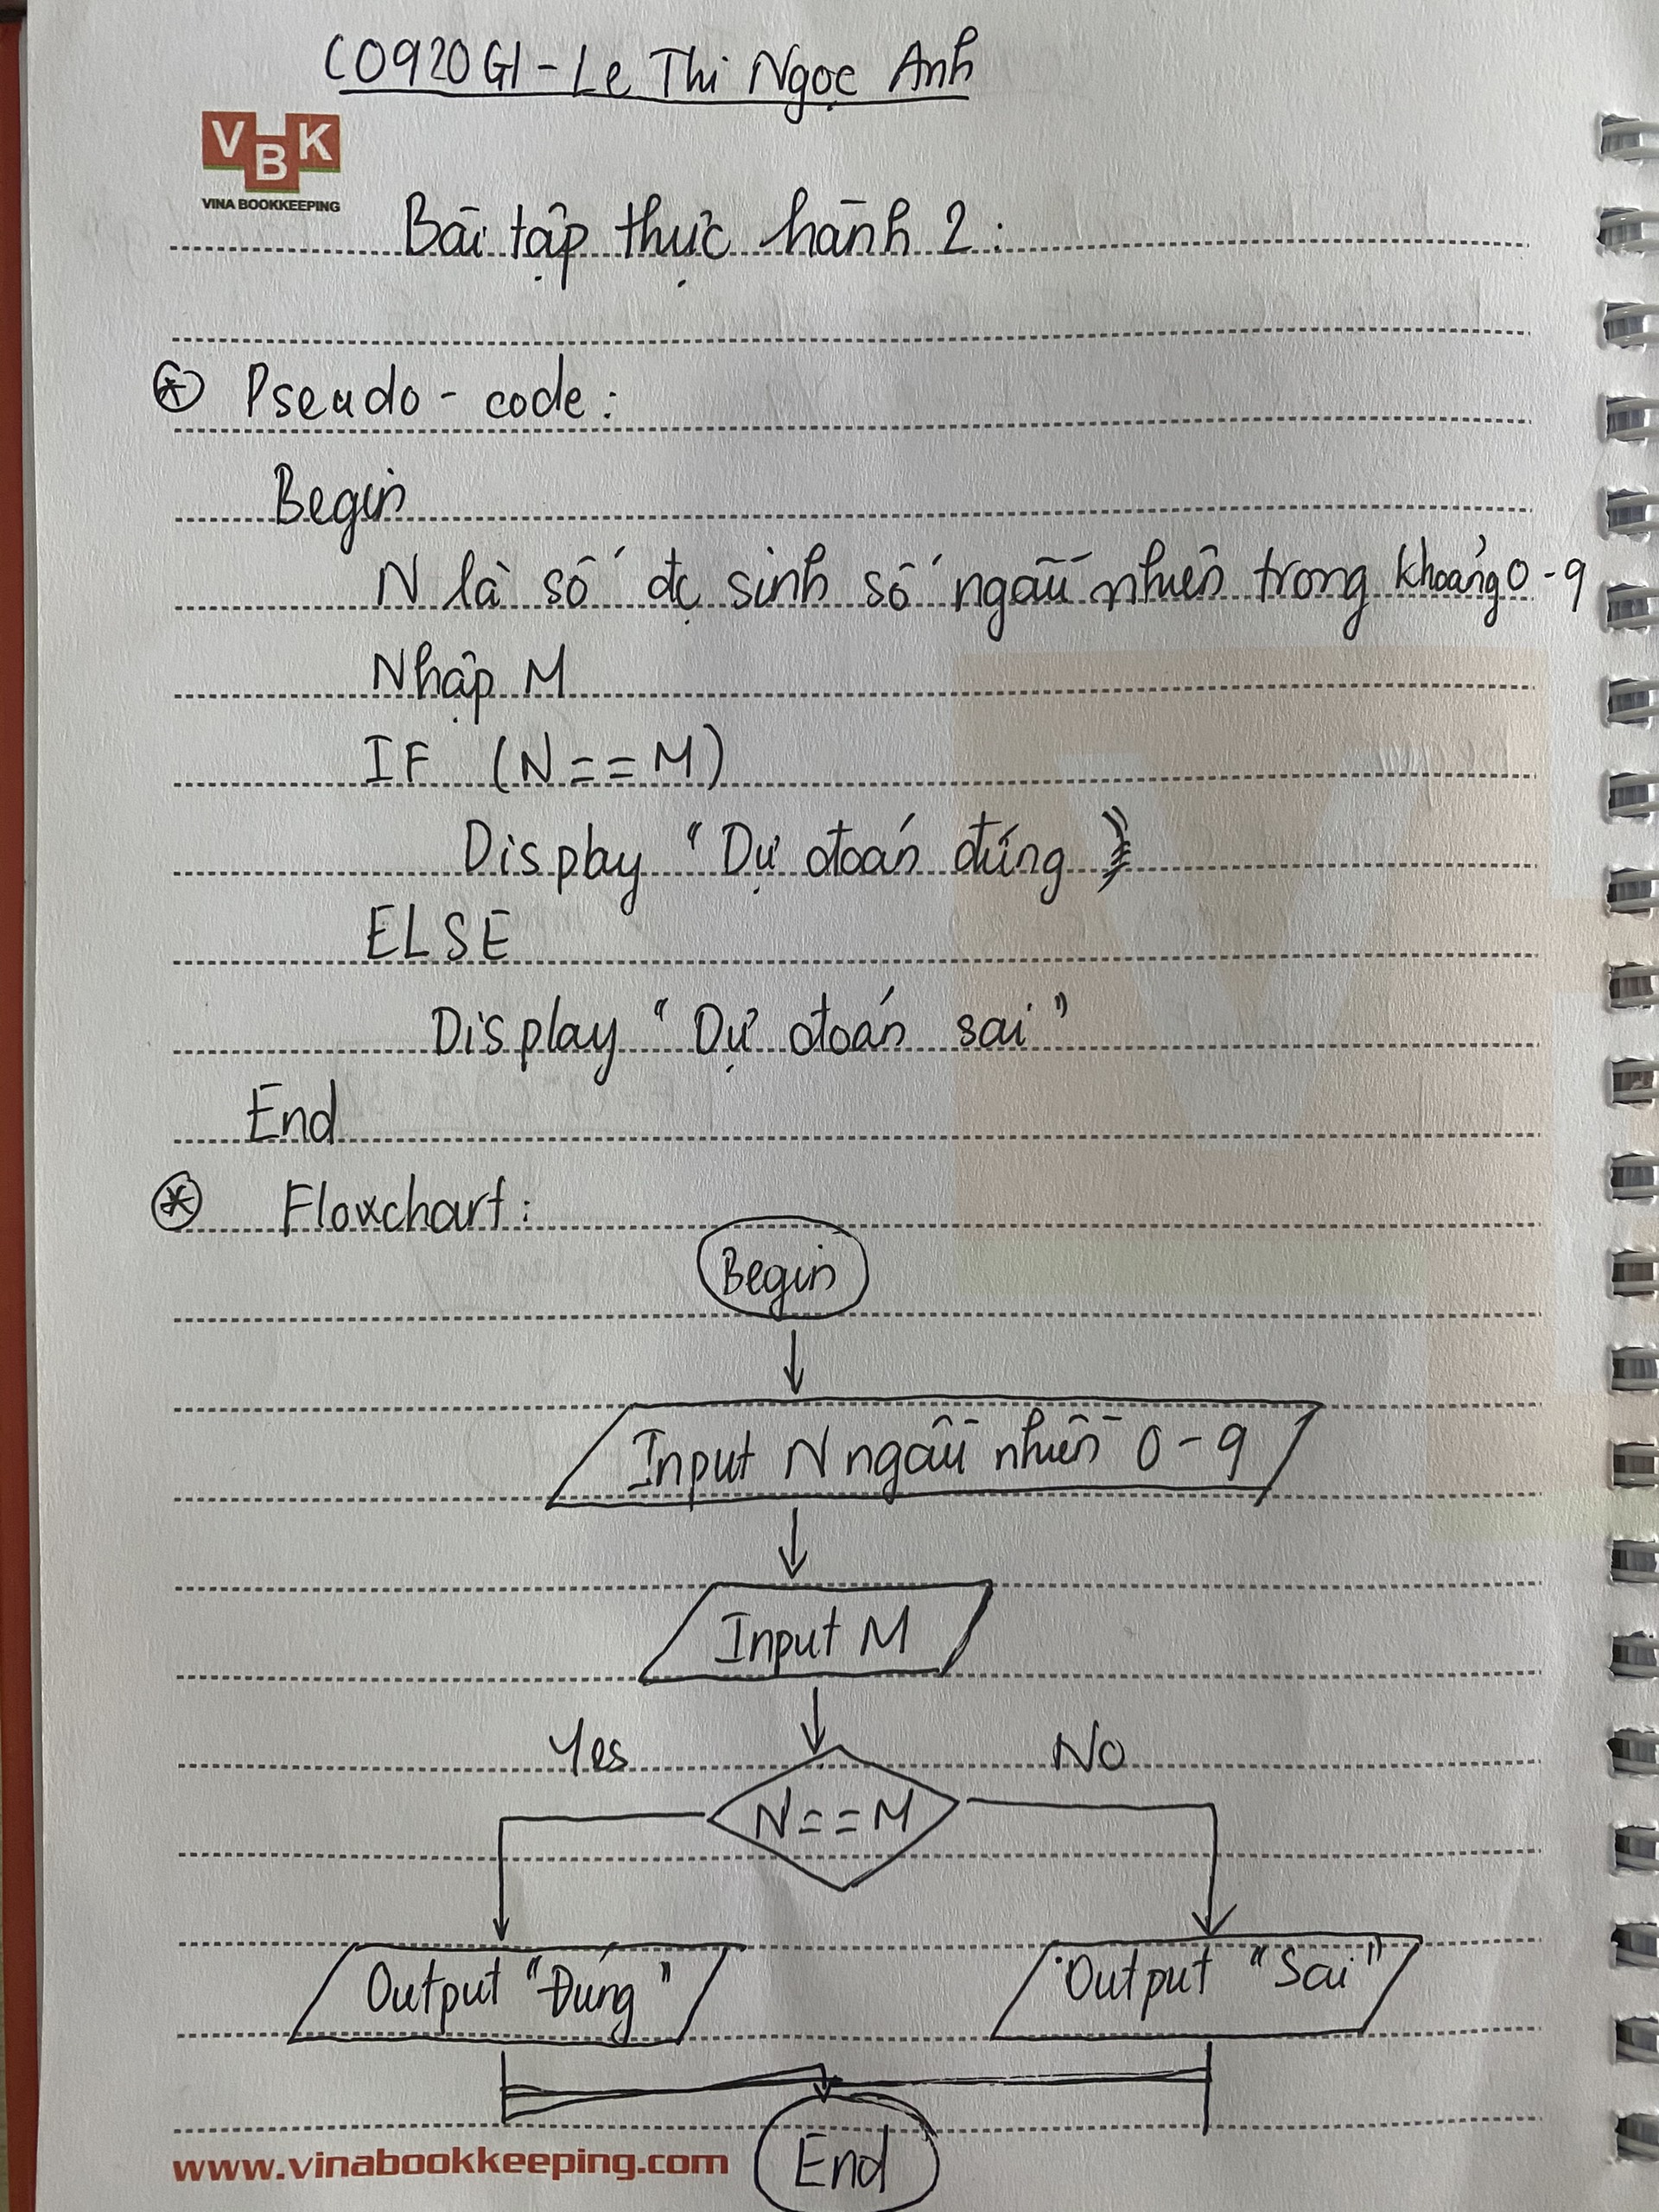 C0920G1 - Le Thi Ngọc Anh
VBK
VINA BOOKKEEPING
Bài tập thực hành 2:
* Pseudo - code:
Begin
N là số đc sinh số ngẫu nhiên trong khoảng 0 - 9
Nhập M
IF (N == M)
Display "Dự đoán đúng"
ELSE
Display "Dự đoán sai"
End
* Flowchart:
Begin
Input N ngẫu nhiên 0 - 9
Input M
Yes No
N == M
Output "Đúng" Output "Sai"
End
www.vinabookkeeping.com